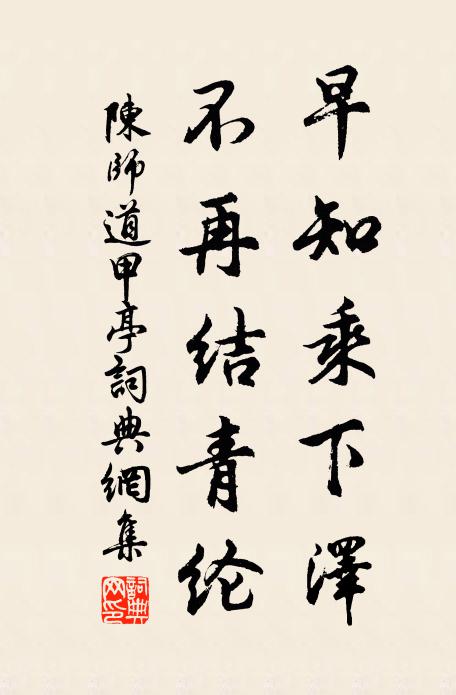 早知乘下澤
不再結青纶
陳師道甲亭詞典網集
詞典网印